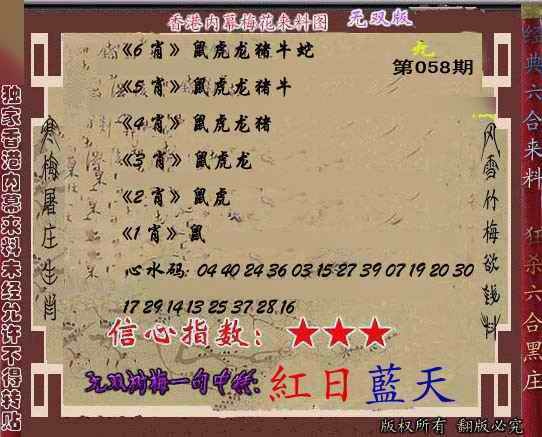 香港内幕梅花来料图 无双版
第058期
《6 肖》 鼠虎龙猪牛蛇
《5 肖》 鼠虎龙猪牛
《4 肖》 鼠虎龙猪
《3 肖》 鼠虎龙
《2 肖》 鼠虎
《1 肖》 鼠
心水码: 04 40 24 36 03 15 27 39 07 19 20 30
17 29 14 13 25 37 28 16
信心指数: ★★★
无双刘梅一句中特: 紅日藍天
版权所有 翻版必究
独家香港内幕来料未经允许不得转贴
寒梅屠庄生肖
风雪竹梅欲钱料
经典六合来料 狂杀六合黑庄